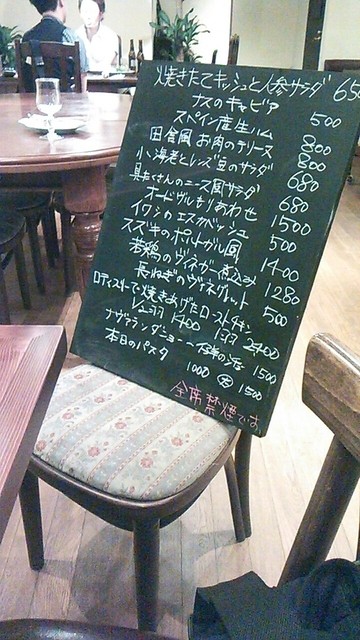 焼きたてキッシュと人参サラダ 650
ナスのキャビア 500
スペイン産生ハム 800
田舎風お肉のテリーヌ 800
小海老とレンズ豆のサラダ 680
具だくさんのニース風サラダ 680
オードヴルもりあわせ 1500
イワシのエスカベッシュ 500
スズキのポルトガル風 1400
若鶏のヴィネガー煮込み 1280
長ねぎのヴィネグレット 500
ロティスリーで焼きあげたローストチキン
1/2羽 1400 1羽 2400
ナヴァランダニョー 1500
本日のパスタ 1000 大 1500
全席禁煙です。